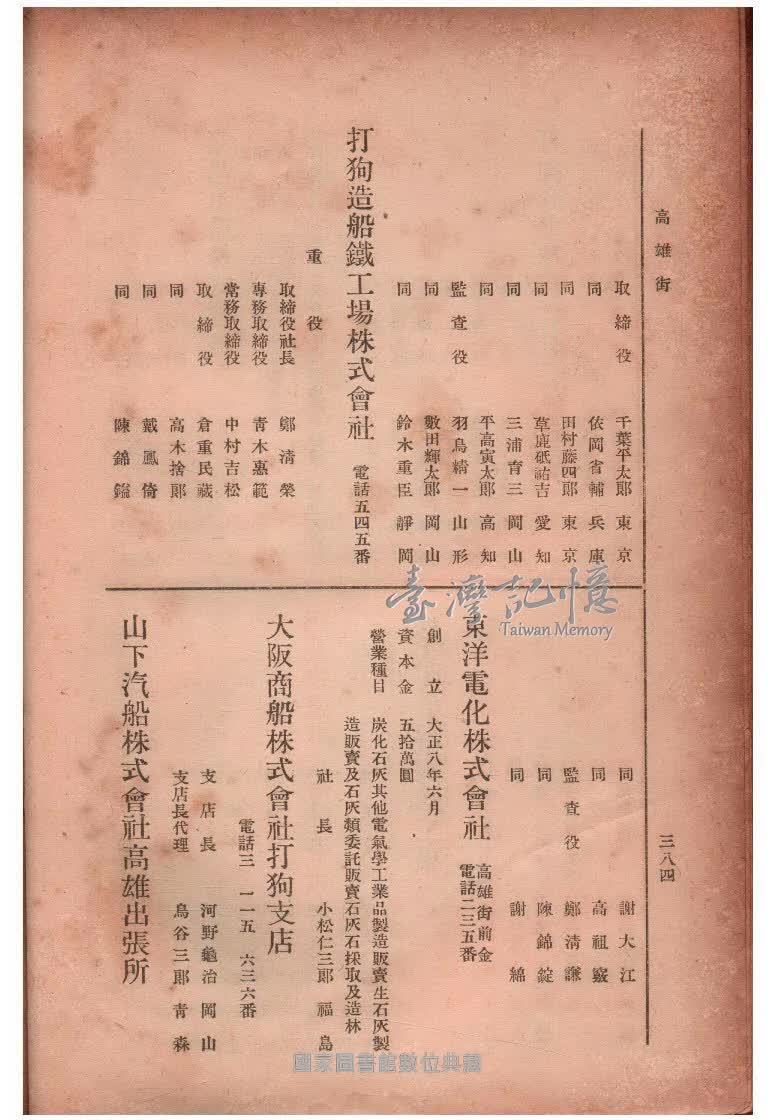 高雄街
三八四
取締役 千葉平太郎 東京
同 依岡省輔 兵庫
同 田村藤四郎 東京
同 草鹿砥祐吉 愛知
同 三浦育三 岡山
同 平高寅太郎 高知
監査役 羽鳥精一 山形
同 數田輝太郎 岡山
同 鈴木重臣 靜岡
打狗造船鐵工場株式會社 電話五四五番
重役
取締役社長 鄭清榮
專務取締役 靑木惠範
常務取締役 中村吉松
取締役 倉重民藏
同 高木捨郞
同 戴鳳倚
同 陳錦鎰
同 謝大江
同 高祖竅
監査役 鄭清謙
同 陳錦錠
同 謝綿
東洋電化株式會社 高雄街前金
電話二三五番
創立 大正八年六月
資本金 五拾萬圓
營業種目 炭化石灰其他電氣學工業品製造販賣生石灰製
造販賣及石灰類委託販賣石灰石採取及造林
社長 小松仁三郞 福島
大阪商船株式會社打狗支店
電話三 一一五 六三六番
支店長 河野龜治 岡山
支店長代理 鳥谷三郞 靑森
山下汽船株式會社高雄出張所
臺灣記憶
Taiwan Memory
國家圖書館數位典藏